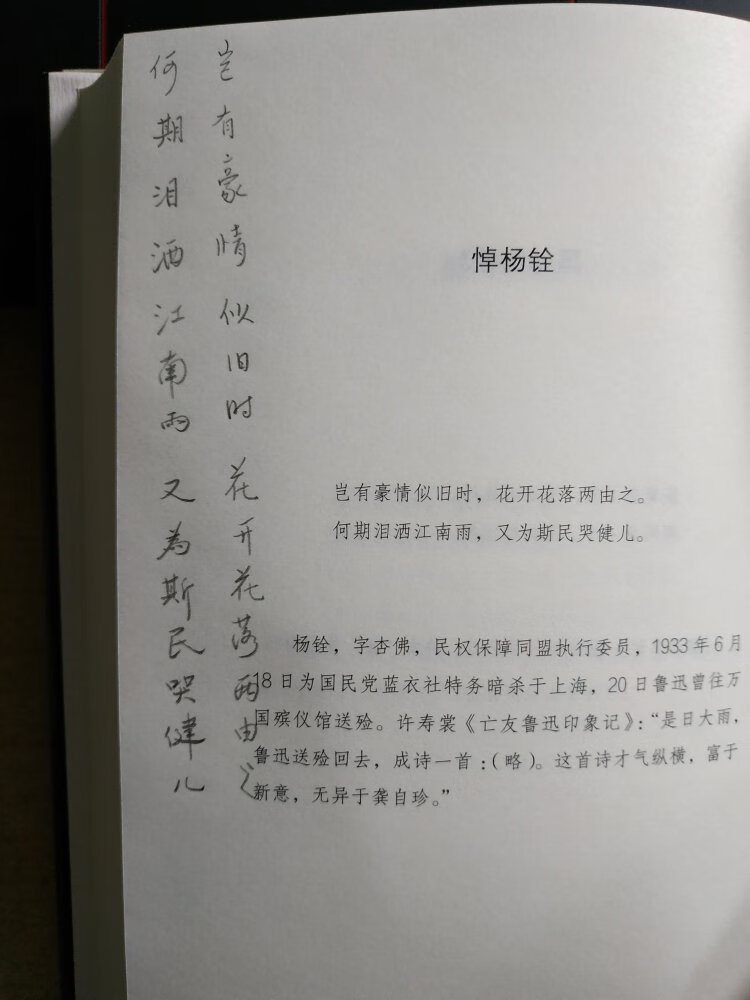 岂有豪情似旧时 花开花落两由之
何期泪洒江南雨 又为斯民哭健儿
悼杨铨
岂有豪情似旧时，花开花落两由之。
何期泪洒江南雨，又为斯民哭健儿。
杨铨，字杏佛，民权保障同盟执行委员，1933年6月
18日为国民党蓝衣社特务暗杀于上海，20日鲁迅曾往万
国殡仪馆送殓。许寿裳《亡友鲁迅印象记》：“是日大雨，
鲁迅送殓回去，成诗一首：(略)。这首诗才气纵横，富于
新意，无异于龚自珍。”